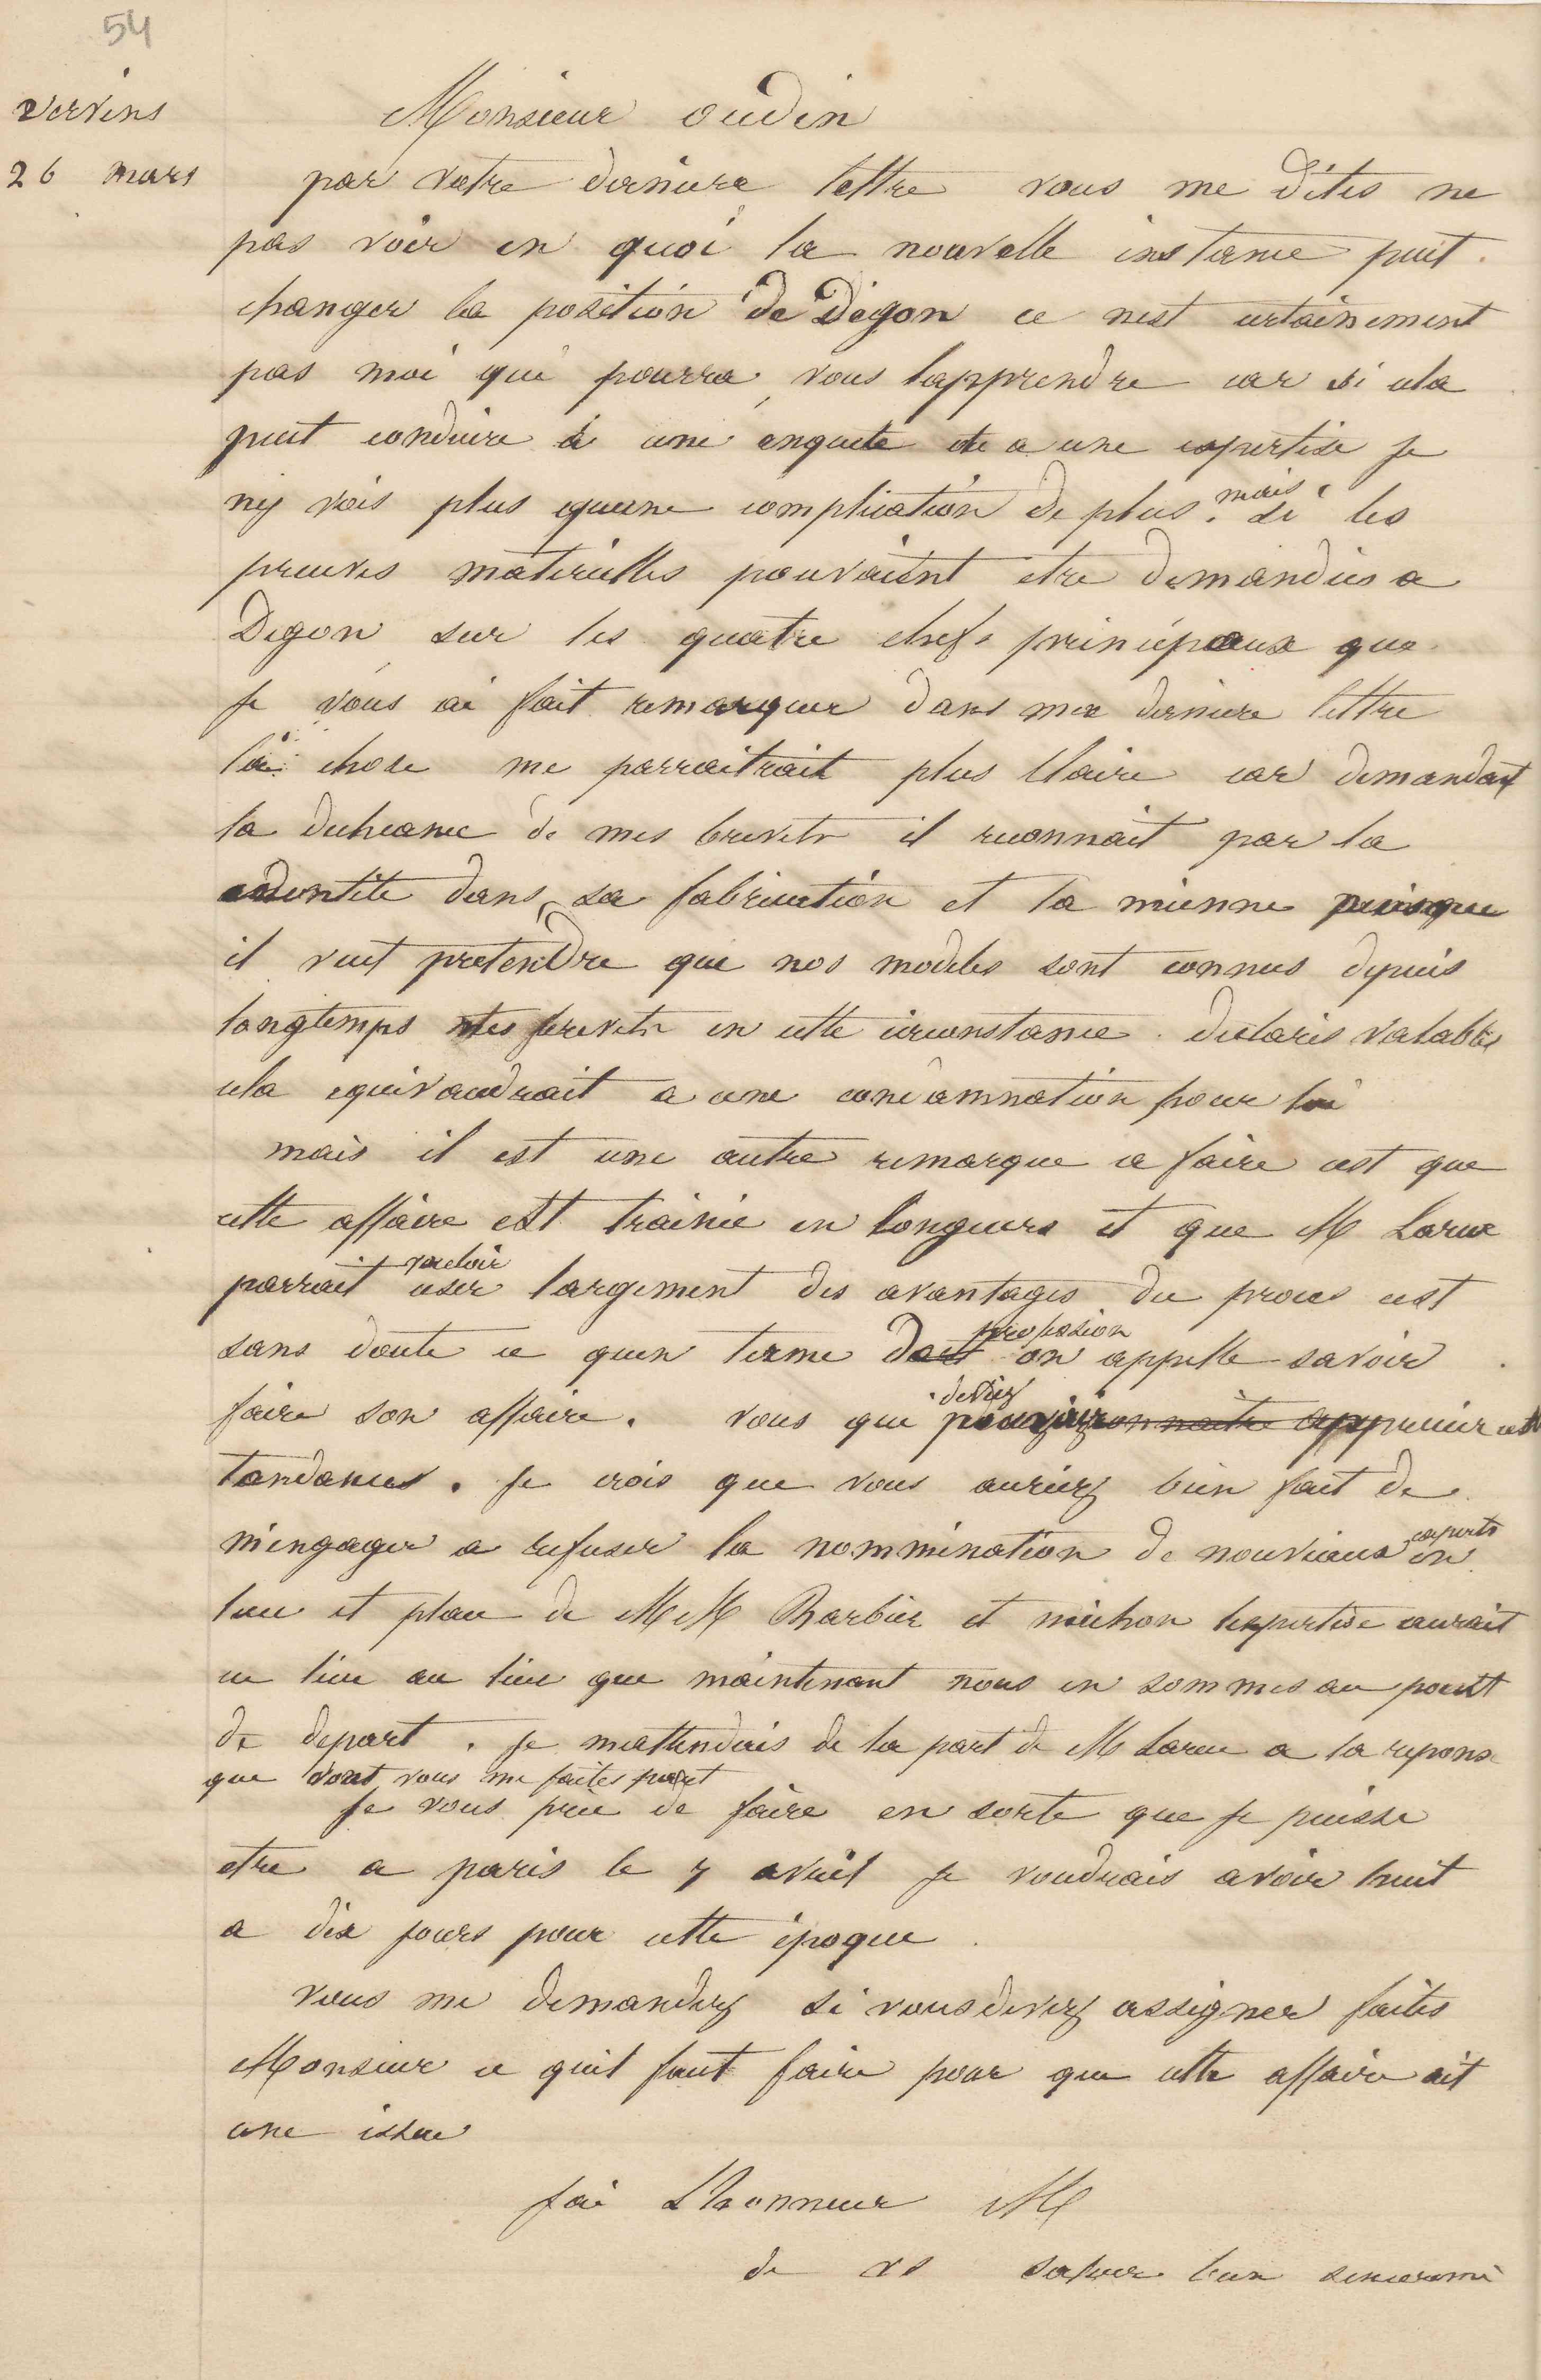 54
Vervins
26 mars
Monsieur oudin
par votre derniere lettre vous me dites ne
pas voir en quoi la nouvelle instance peut
changer la position de Degon ce nest certainement
pas moi qui pourra vous lapprendre car si cela
peut conduire à une enquete et a une expertise je
ny vois plus quune complication de plus. mais si les
preuves materielles pouvaient etre demandées a
Degon sur les quatre chefs principaux que
je vous ai fait remarquer dans ma derniere lettre
la chose me parraitrait plus claire car demandant
la decheance de mes brevets il reconnait par la
identité dans sa fabrication et la mienne puisque
il veut pretendre que nos modeles sont connus depuis
longtemps mes brevets en cette circonstance declarés valables
cela equivaudrait a une condamnation pour lui
mais il est une autre remarque a faire cest que
cette affaire est trainée en longueurs et que M Larue
parrait vouloir user largement des avantages du procès cest
sans doute ce quen terme doit profession on appelle savoir
faire son affaire. vous que deviez pouviez connaitre apprecier ces
tandances. je crois que vous auriez bien fait de
mengager a refuser la nommination de nouveaux experts en
lieu et place de MM Barbier et michon lexpertise aurait
eu lieu au lieu que maintenant nous en sommes au point
de depart. je mattendais de la part de M Larue a la reponse
que dont vous me faites part
je vous prie de faire en sorte que je puisse
etre a paris le 7 avril je voudrais avoir huit
a dix jours pour cette époque
vous me demandez si vous devez assigner faites
Monsieur ce quil faut faire pour que cette affaire ait
une issue
jai Lhonneur M
de vs saluer bien